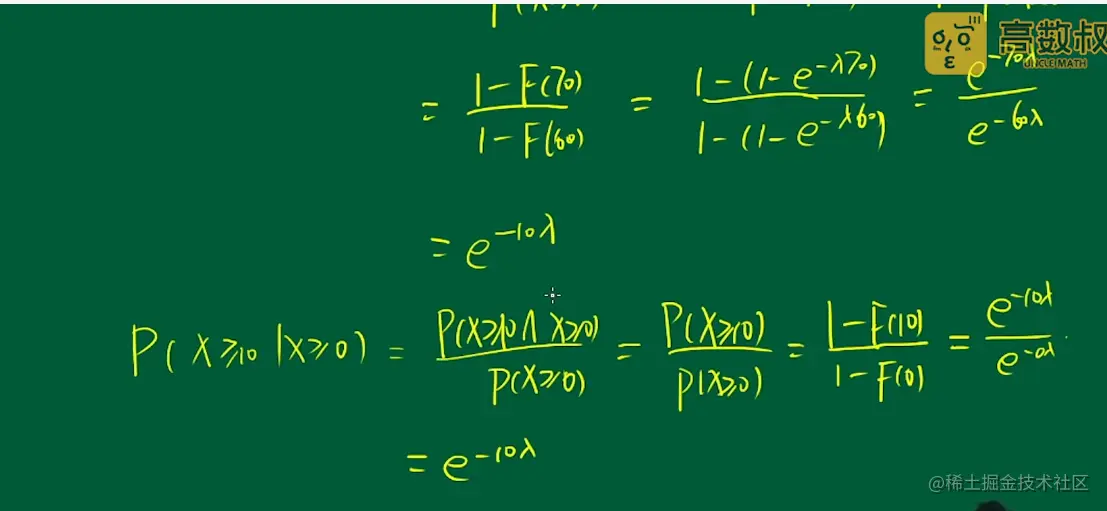 高数叔
UNCLE MATH
= \frac{1-F(70)}{1-F(60)} = \frac{1-(1-e^{-λ70})}{1-(1-e^{-λ60})} = \frac{e^{-70λ}}{e^{-60λ}}
= e^{-10λ}
P(X≥10|X≥0) = \frac{P(X≥10∩X≥0)}{P(X≥0)} = \frac{P(X≥10)}{P(X≥0)} = \frac{1-F(10)}{1-F(0)} = \frac{e^{-10λ}}{e^{-0λ}}
= e^{-10λ}
@稀土掘金技术社区